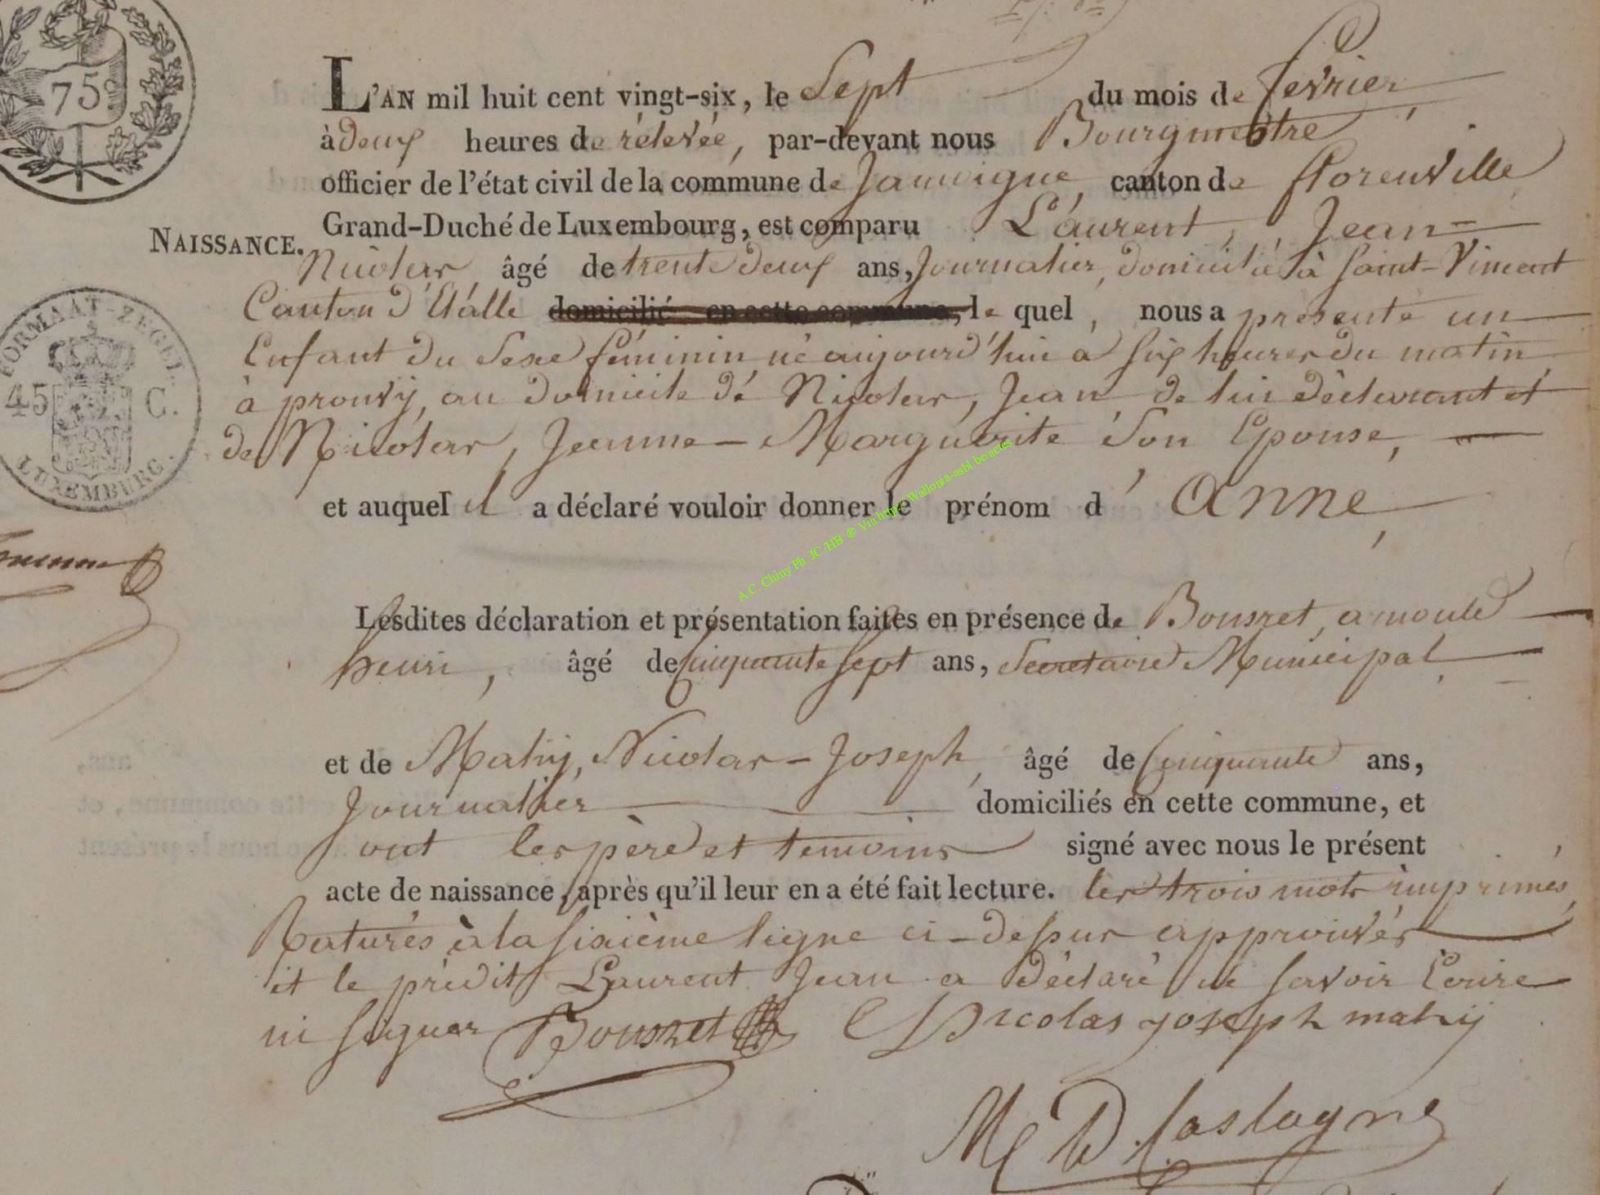 75c
L'AN mil huit cent vingt-six, le Sept du mois de fevrier
à deux heures de rélevée, par-devant nous Bourgmestre
officier de l'état civil de la commune de Jamoigne, canton de florenville
Grand-Duché de Luxembourg, est comparu Laurent, Jean-
NAISSANCE.
Nicolas âgé de trente deux ans, Journalier, domicilié à Saint-Vincent
Canton d'Etalle domicilié en cette commune, le quel, nous a présenté un
Enfant du Sexe féminin né aujourd'hui à six heures du matin
à prouvy, au domicile de Nicolas, Jean, de lui déclarant et
de Nicolas, Jeanne-Marguerite Son Epouse,
et auquel il a déclaré vouloir donner le prénom d'Anne,
FORMAAT-ZEGEL.
45 C.
LUXEMBURG.
A.C. Chiny Ph. JC/HB @
Lesdites déclaration et présentation faites en présence de Bousret, arnould
henri, âgé de Cinquante Sept ans, Secretaire Municipal
et de Mahy, Nicolas-Joseph, âgé de Cinquante ans,
Journalier domiciliés en cette commune, et
ont les père et temoins signé avec nous le présent
acte de naissance, après qu'il leur en a été fait lecture. les trois mots imprimés,
Raturés à la sixième ligne ci-dessus approuvés
et le prédit Laurent Jean a déclaré ne savoir Ecrire
ni signer Bousret Nicolas joseph mahy